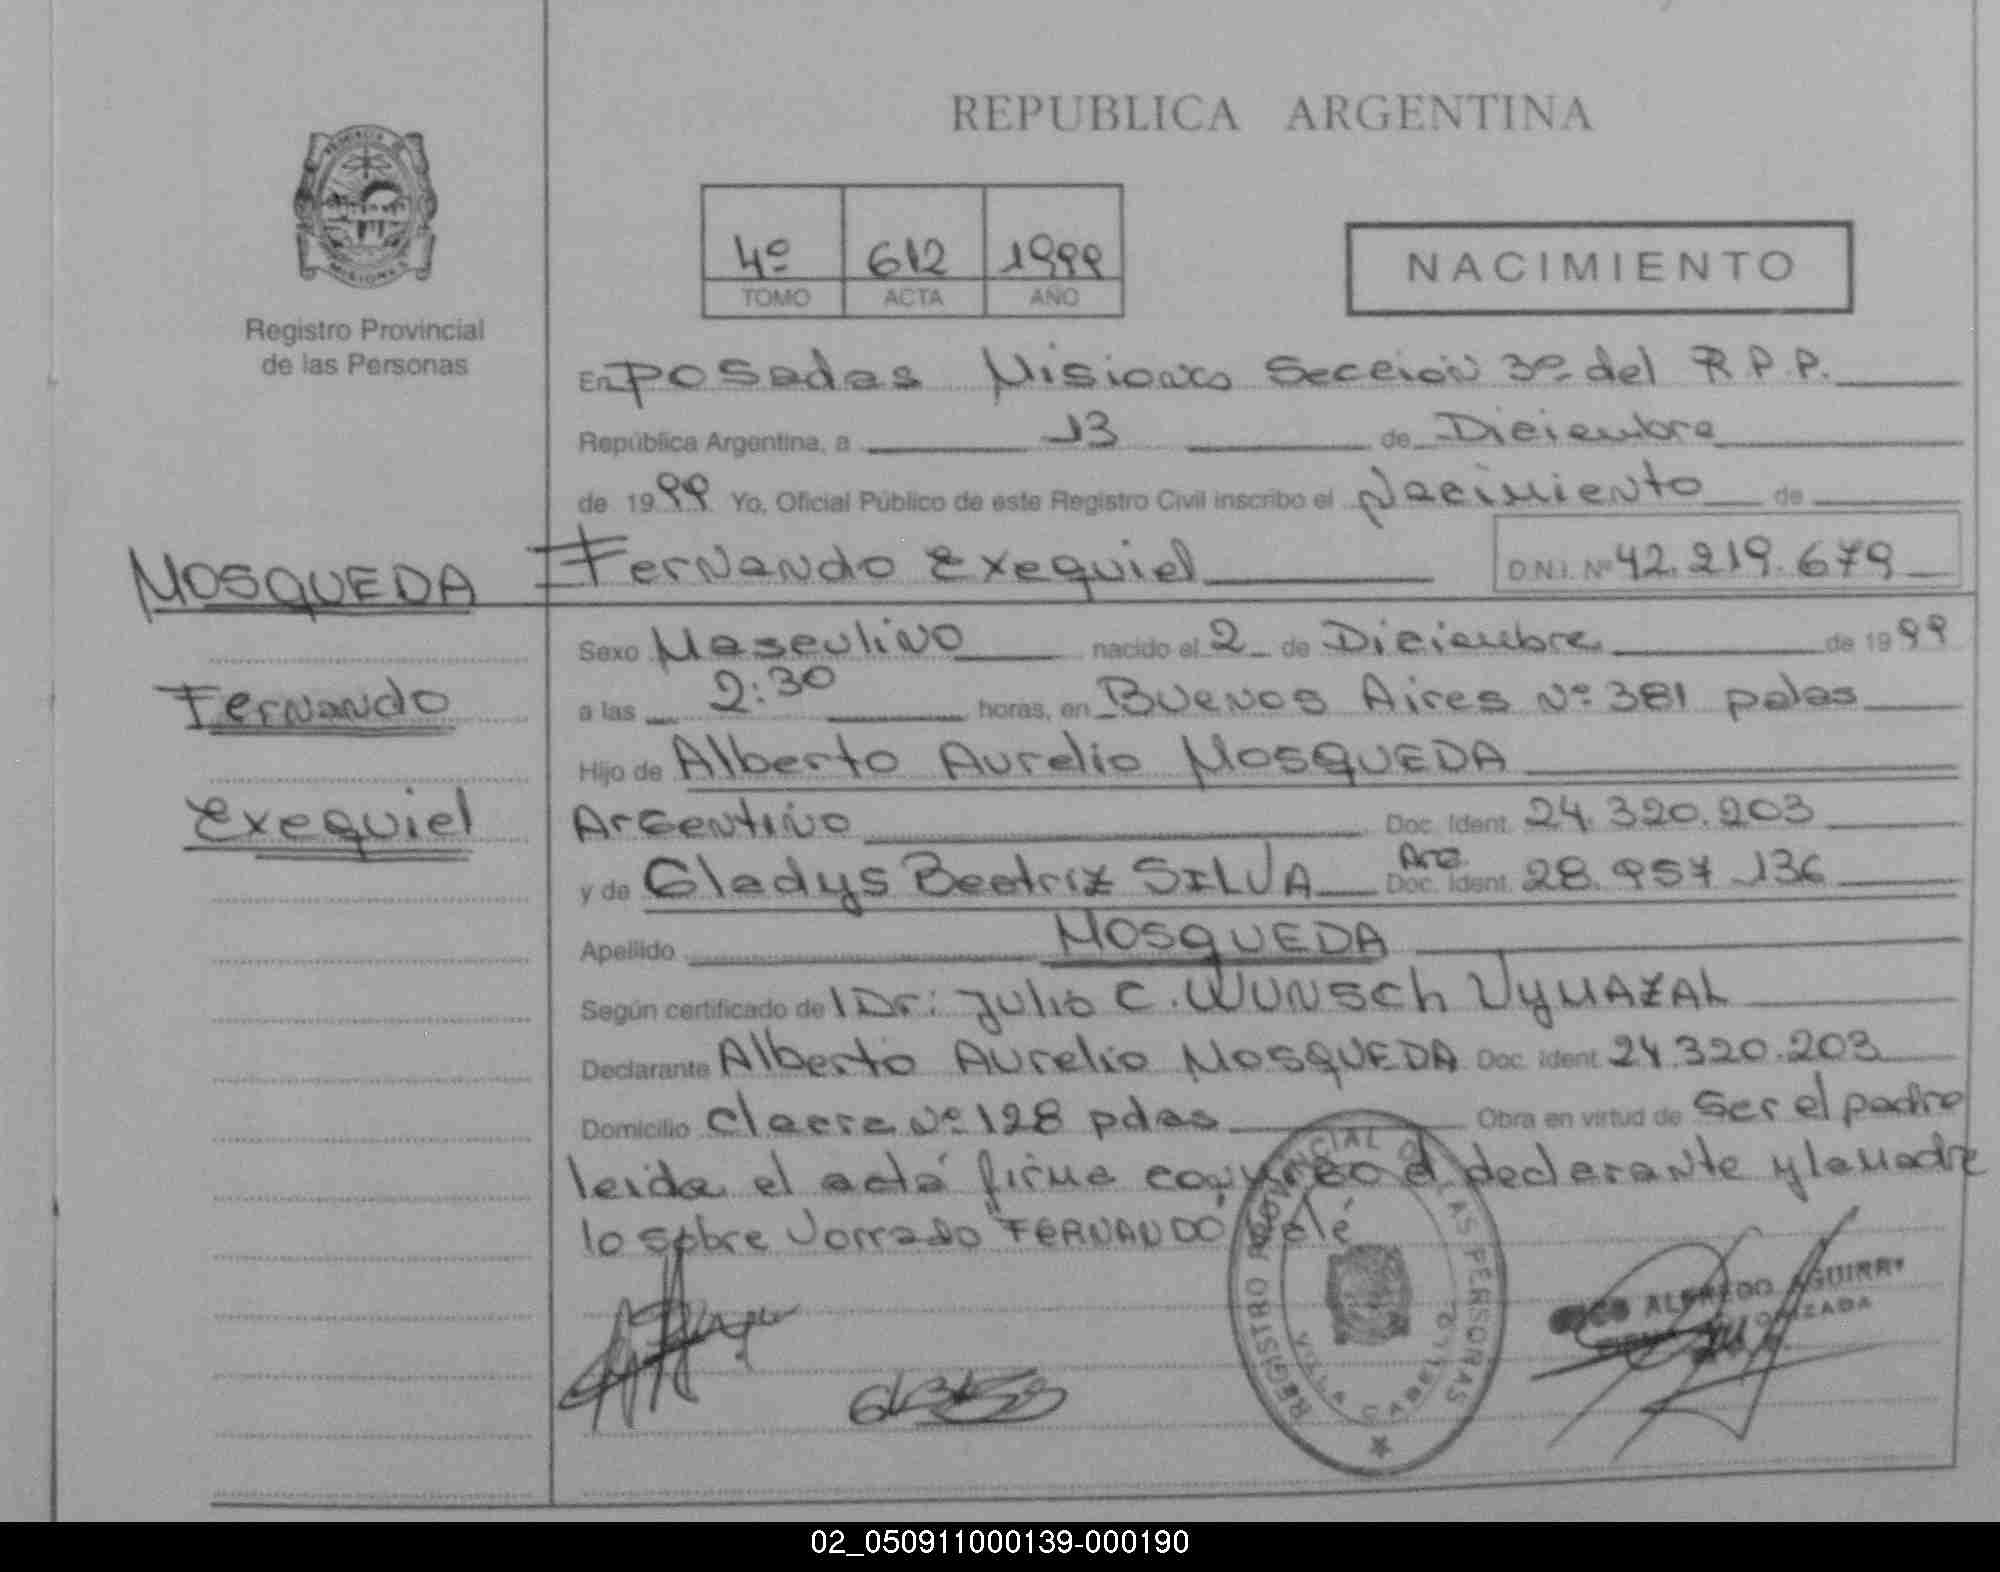 PROVINCIA DE MISIONES
Registro Provincial
de las Personas
MOSQUEDA
Fernando
Exequiel
REPUBLICA ARGENTINA
4º 612 1999
TOMO ACTA AÑO
NACIMIENTO
En Posadas Misiones Sección 3º del R.P.P.
República Argentina, a 13 de Diciembre
de 1999 Yo, Oficial Público de este Registro Civil inscribo el Nacimiento de
Fernando Exequiel D.N.I. Nº 42.219.679
Sexo Masculino nacido el 2 de Diciembre de 1999
a las 2:30 horas, en Buenos Aires Nº 381 pdas
Hijo de Alberto Aurelio MOSQUEDA
Argentino Doc. Ident. 24.320.203
y de Gladys Beatriz SILVA Arg. Doc. Ident. 28.957.136
Apellido MOSQUEDA
Según certificado de l Dr: Julio C. WUNSCh VyMAZAL
Declarante Alberto Aurelio MOSQUEDA Doc. Ident. 24.320.203
Domicilio Claera Nº 128 pdas Obra en virtud de Ser el padre
leida el acta firma conmigo el declarante y la Madre
lo sobre borrado "FERNANDO" Valé
REGISTRO PROVINCIAL DE LAS PERSONAS
VILLA CABELLO
ALFREDO AGUIRRE
02_050911000139-000190